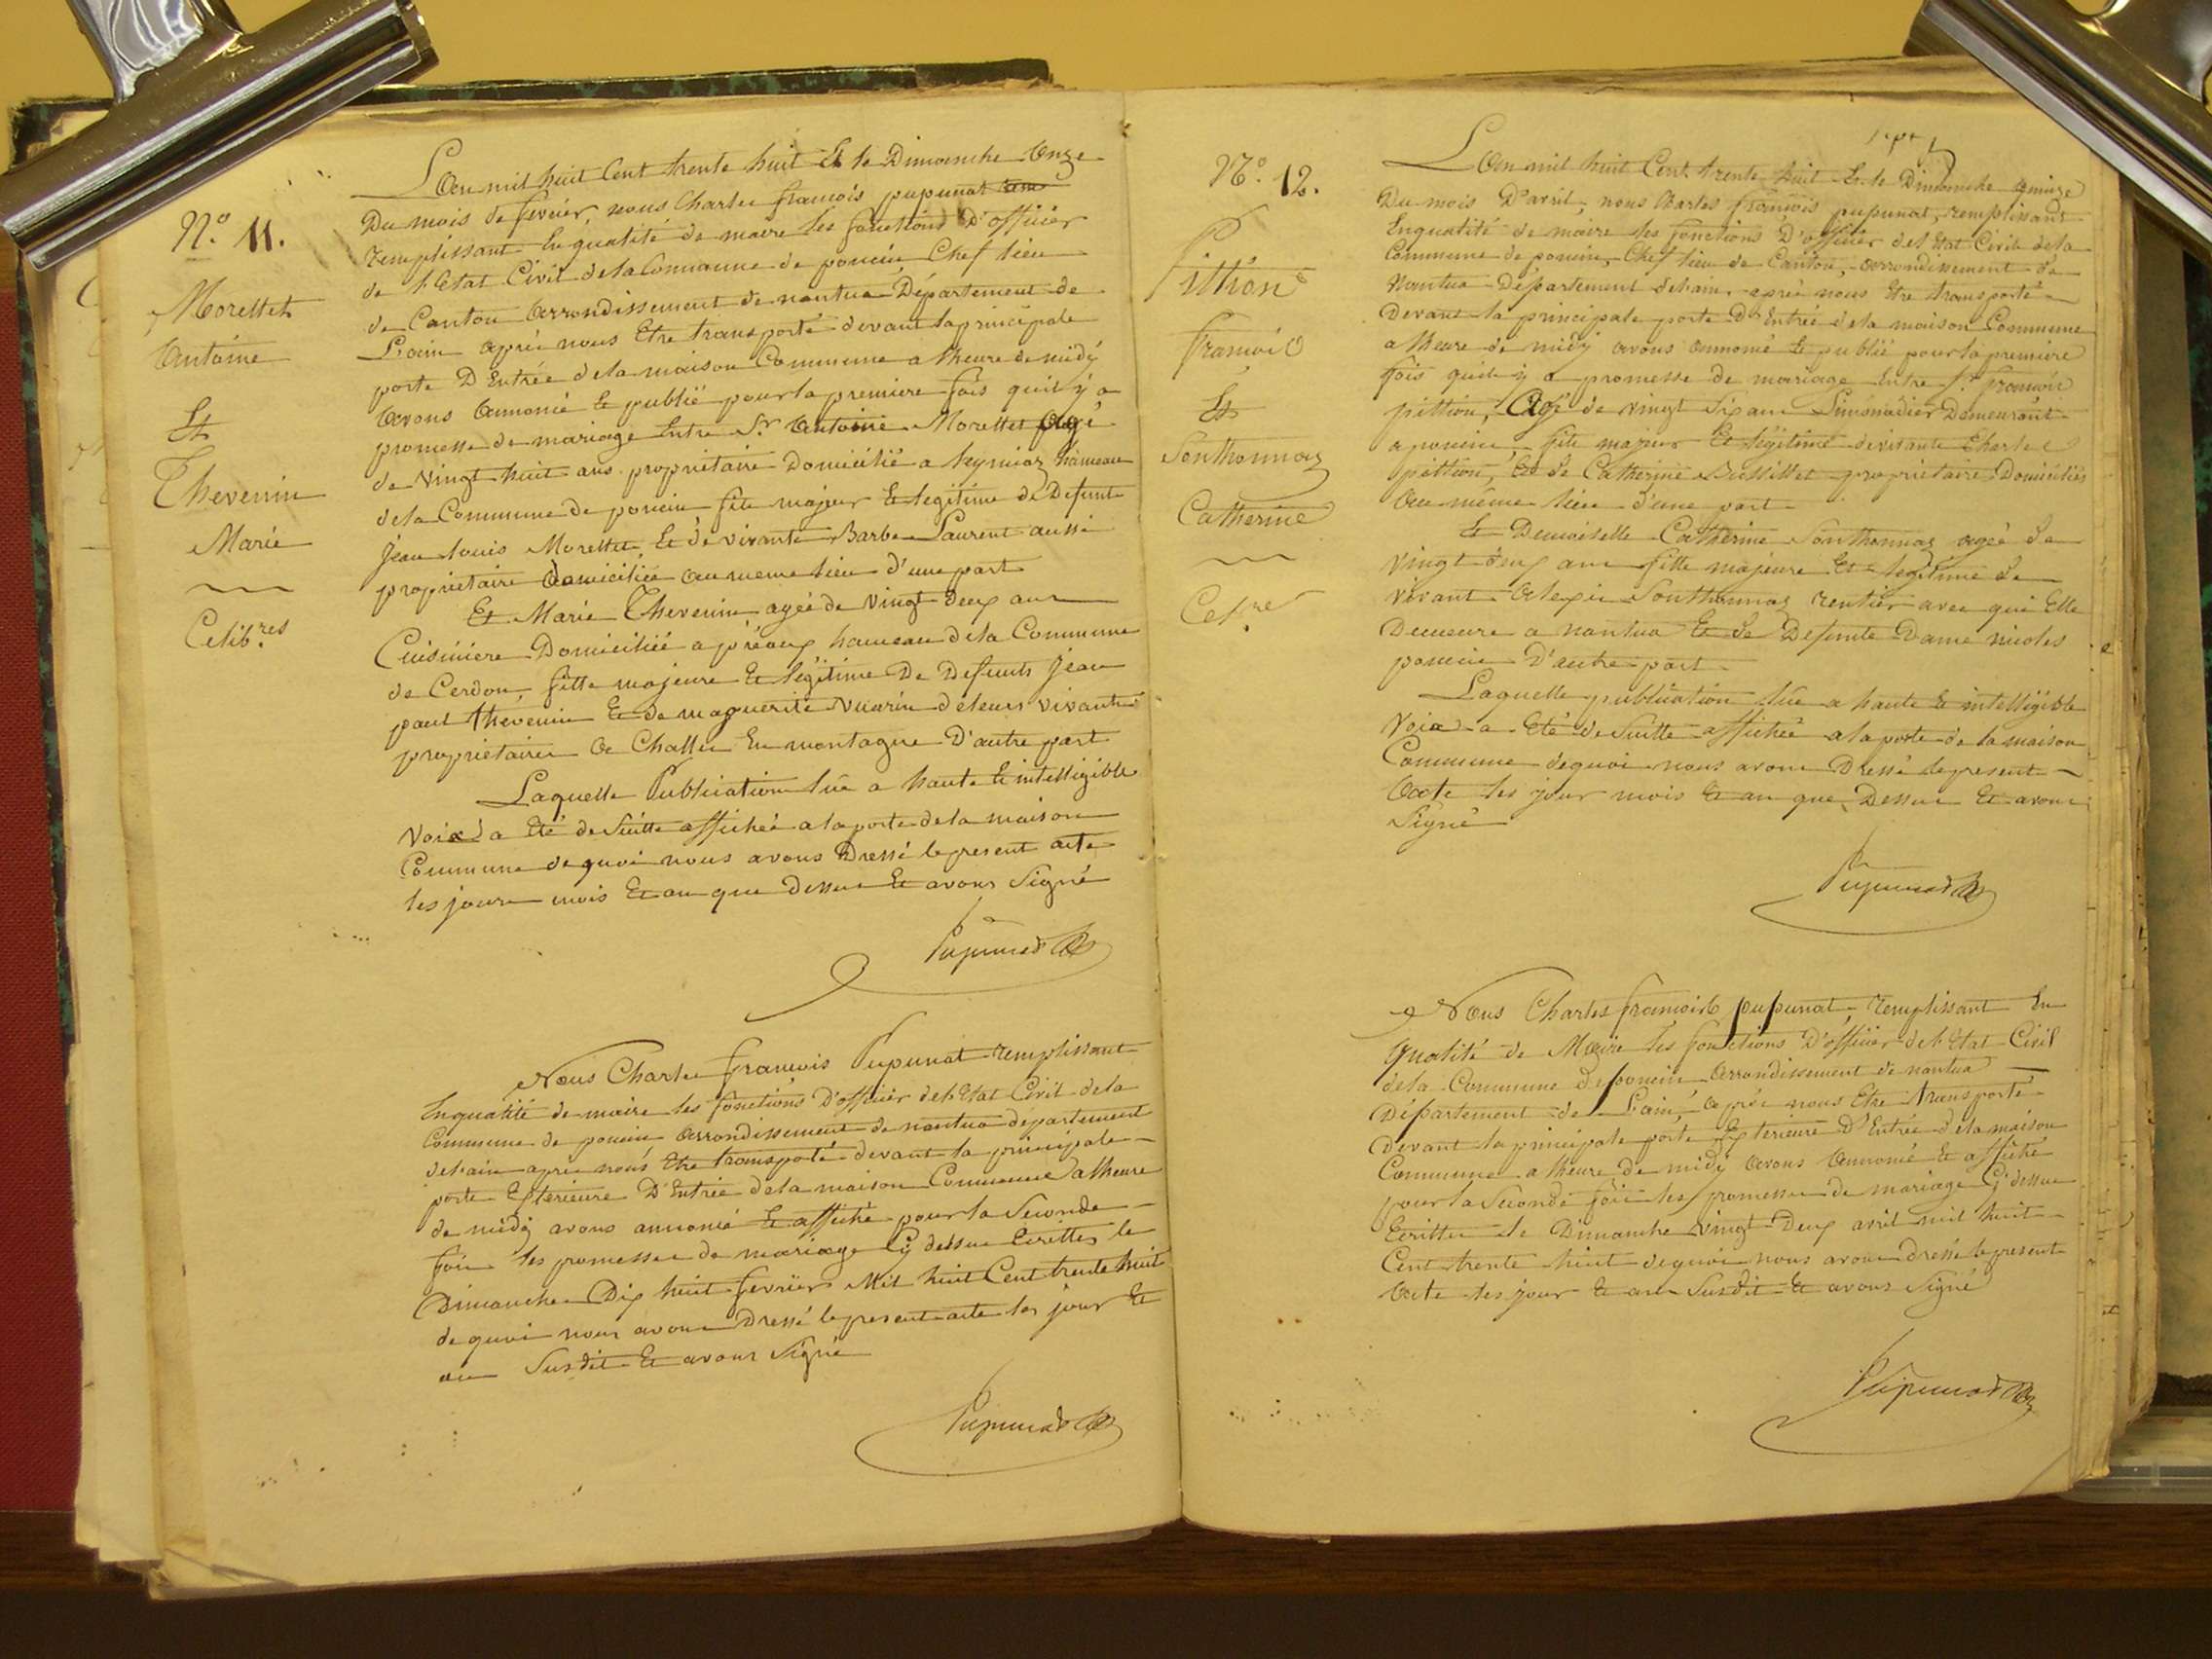 N.° 11.
Morellet
Antoine
Et
Thevenin
Marie
Celib.res
L'an mil huit Cent trente huit Et le Dimanche Onze
Du mois de fevrier, nous Charles françois pupunat
remplissant En qualité de maire les fonctions D'officier
de l'Etat Civil de la Commune de poncin Chef lieu
de Canton arrondissement de nantua Département de
L'ain après nous Etre transporté devant la principale
porte D'Entrée de la maison Commune a lheure de midy
avons annoncé Et publié pour la premiere fois quil y a
promesse de mariage Entre S.r Antoine Morellet agé
de vingt huit ans propriétaire Domicilié a leymiaz hameau
de la Commune de poncin fils majeur Et legitime de Defunt
Jean louis Morellet Et de vivante Barbe Laurent aussi
propriétaire domiciliée au meme lieu d'une part
Et Marie Thevenin agée de vingt deux ans
Cuisiniere Domiciliée a préaux hameau de la Commune
de Cerdon, fille majeure Et legitime De Defunts Jean
paul thevenin Et de marguerite vuarin de leurs vivants
propriétaires a Challes En montagne D'autre part
Laquelle Publication lue a haute Et intelligible
voix a Eté de Suitte affichée a la porte de la maison
Commune de quoi nous avons Dressé le present acte
les jour mois Et an que dessus Et avons Signé
Pupunat
Nous Charles françois Pupunat remplissant
En qualité de maire les fonctions D'officier de l'Etat Civil de la
Commune de poncin arrondissement de nantua département
de l'ain après nous Etre transporté devant la principale
porte Exterieure D'Entrée de la maison Commune a lheure
de midy avons annoncé Et affiché pour la Seconde
fois les promesses de mariage Cy dessus Ecrittes le
Dimanche Dix huit fevrier Mil huit Cent trente huit
de quoi nous avons Dressé le present acte les jour Et
an Susdit Et avons Signé
Pupunat
N.° 12.
Pittion
françois
Et
Sonthonnaz
Catherine
Cel.re
L'an mil huit Cent trente huit Et le Dimanche quinze
Du mois D'avril, nous Charles françois pupunat, remplissant
En qualité de maire les fonctions D'officier de l'Etat Civil de la
Commune de poncin, Chef lieu de Canton, arrondissement de
Nantua Département de l'ain, après nous Etre transporté
Devant la principale porte D'Entrée de la maison Commune
a lheure de midy avons annoncé Et publié pour la premiere
fois quil y a promesse de mariage Entre S.r françois
pittion, Agé de vingt Six ans Limonadier Demeurant
a poncin, fils majeur Et legitime de vivants Charles
pittion, Et de Catherine Bussillet propriétaires Domiciliés
au même lieu d'une part
Et Demoiselle Catherine Sonthonnaz agée de
vingt deux ans fille majeure Et legitime de
vivant Alexis Sonthonnaz rentier avec qui Elle
Demeure a nantua Et de Defunte Dame nicoles
poncin D'autre part
Laquelle publication lue a haute Et intelligible
Voix a Eté de Suitte affichée a la porte de la maison
Commune de quoi nous avons Dressé le present
Acte les jour mois Et an que Dessus Et avons
Signé
Pupunat
Nous Charles françois pupunat remplissant En
qualité de Maire les fonctions D'officier de l'Etat Civil
de la Commune de poncin arrondissement de nantua
Département de L'ain, après nous Etre transporté
Devant la principale porte Exterieure D'Entrée de la maison
Commune a lheure de midy avons annoncé Et affiché
pour la Seconde fois les promesses de mariage Cy dessus
Ecrittes le Dimanche vingt Deux avril mil huit
Cent trente huit de quoi nous avons dressé le present
Acte les jour Et an Susdit Et avons Signé
Pupunat